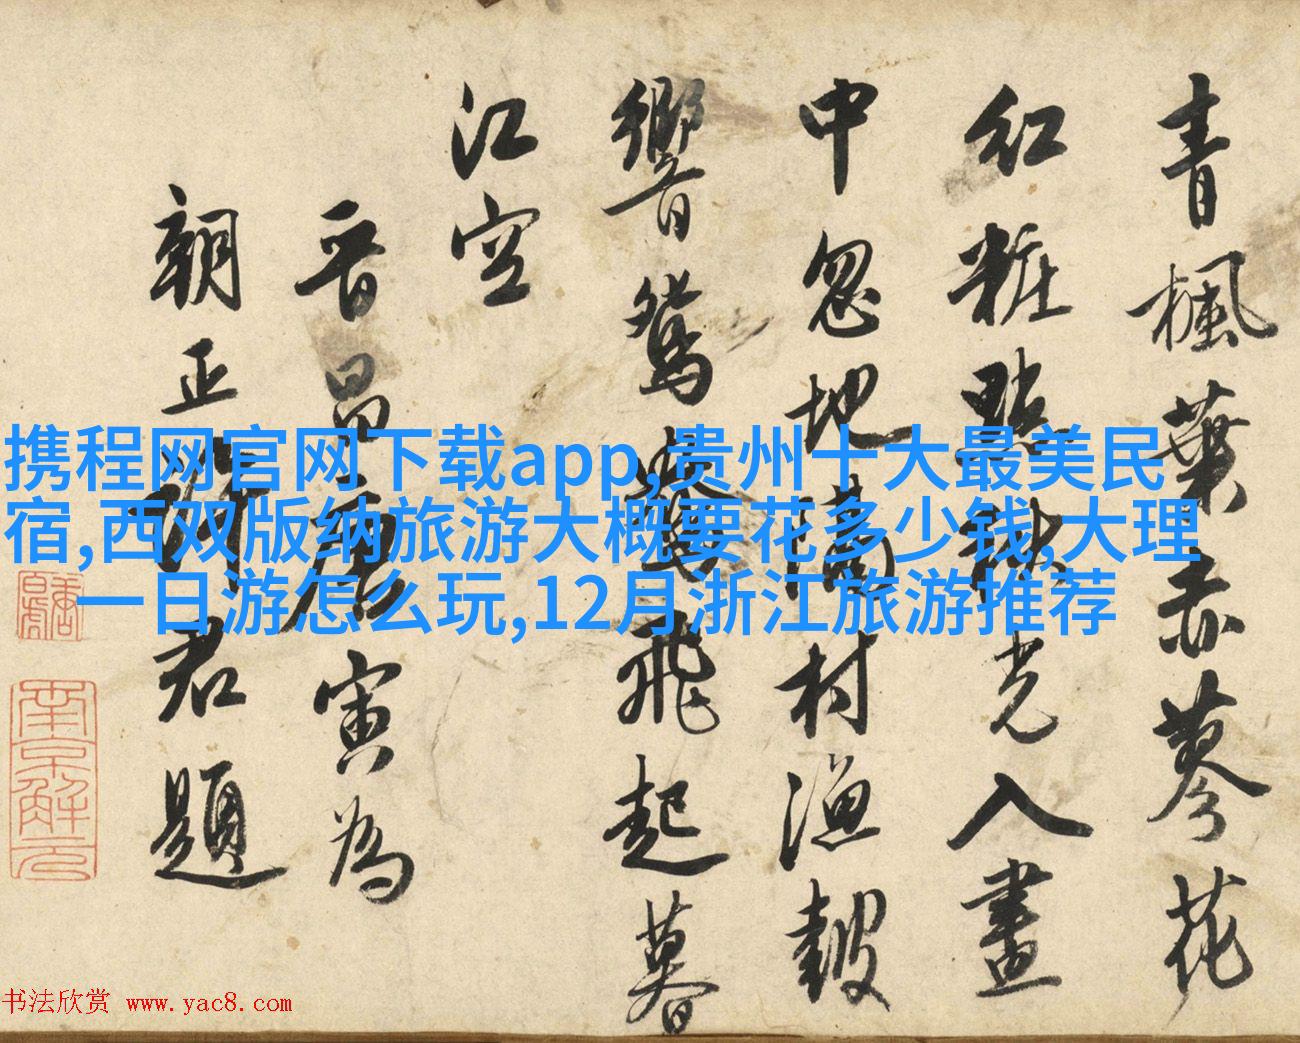 青楓葉赤蓼花
紅粧點秋光入畫
中忽地隔村漁鼓
響鴛鴦飛起暮
江空
晉昌唐寅為
朝正君題
南京解元
携程网官网下载app,贵州十大最美民
宿,西双版纳旅游大概要花多少钱,大理
一日游怎么玩,12月浙江旅游推荐
书法欣赏 www.yac8.com